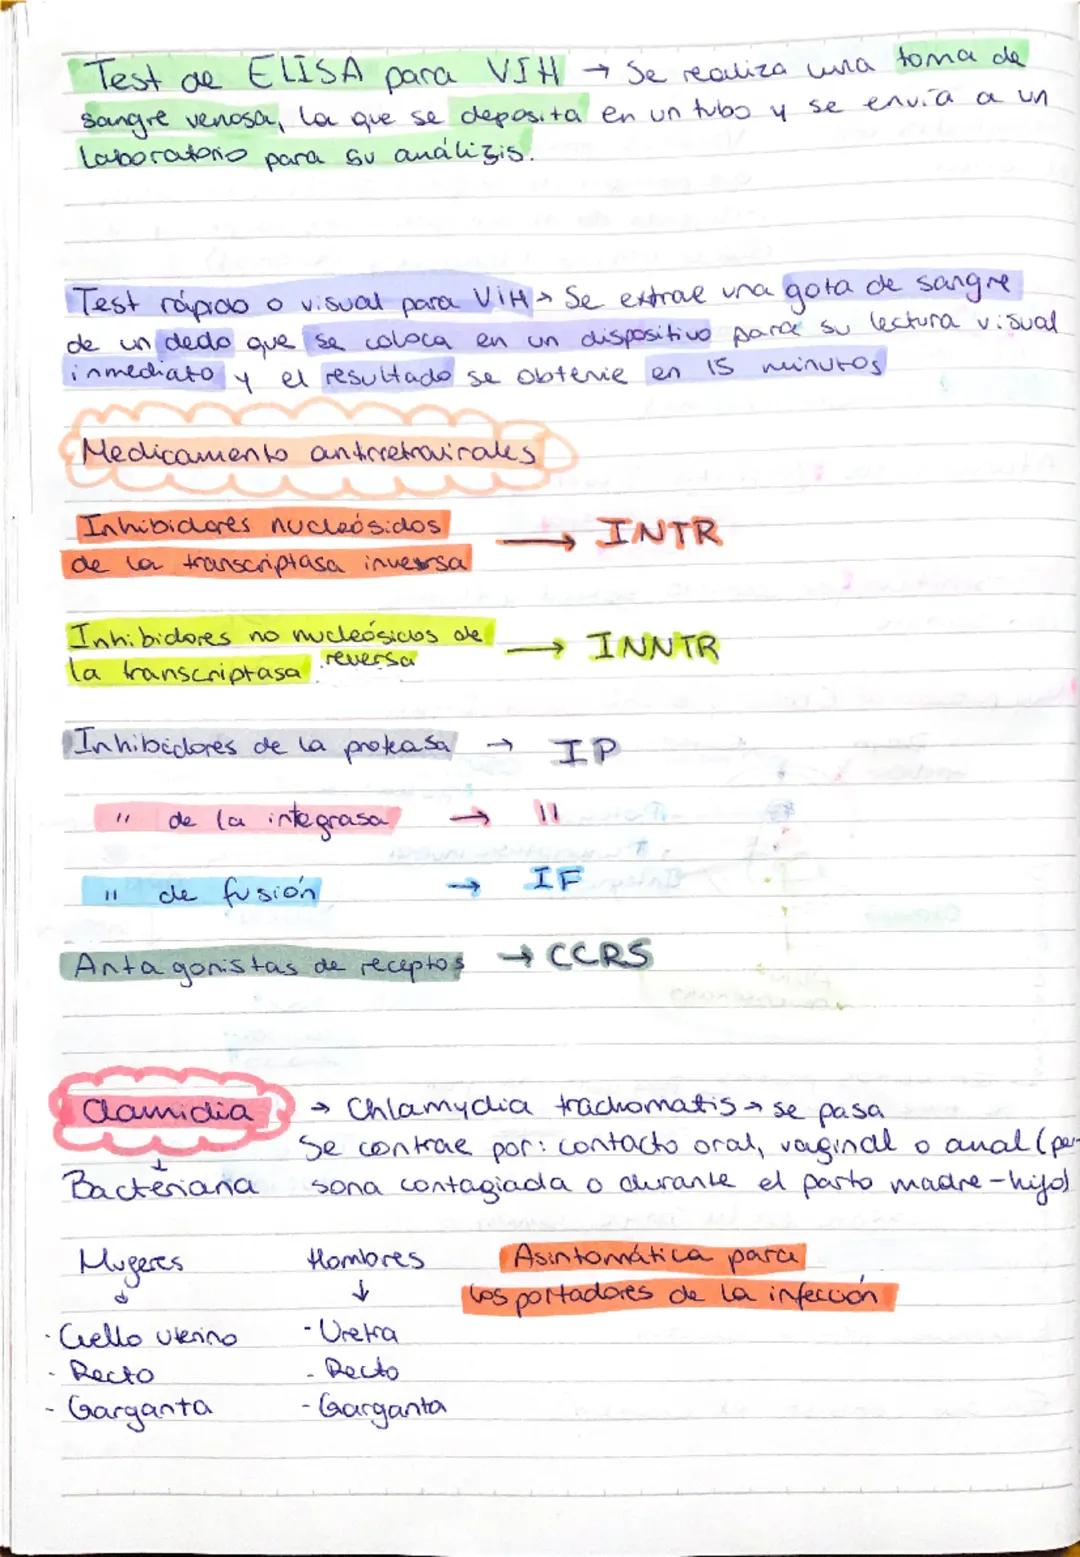 Test de ELISA para VIH → Se realiza una toma de
sangre venosa, la que se deposita en un tubo y se envía a un
laboratorio para su análizis.
Test rápido o visual para ViH → Se extrae una gota de sangre
de un dedo que se coloca en un dispositivo para su lectura visual
inmediato y el resultado se obtenie en 15 minutos
Medicamento antrretrovirales
Inhibidores nucleósidos
de la transcriptasa inversa → INTR
Inhibidores no nucleósidos de
la transcriptasa reversa → INNTR
Inhibidores de la proteasa → IP
" de la integrasa → II
" de fusión → IF
Antagonistas de receptos → CCR5
Clamidia → Chlamydia trachomatis → se pasa
Se contrae por: contacto oral, vaginal o anal (per-
Bacteriana sona contagiada o durante el parto madre-hijo)
Mugeres Hombres Asintomática para
↓ ↓ los portadores de la infección
· Cuello uterino - Uretra
- Recto - Recto
- Garganta - Garganta